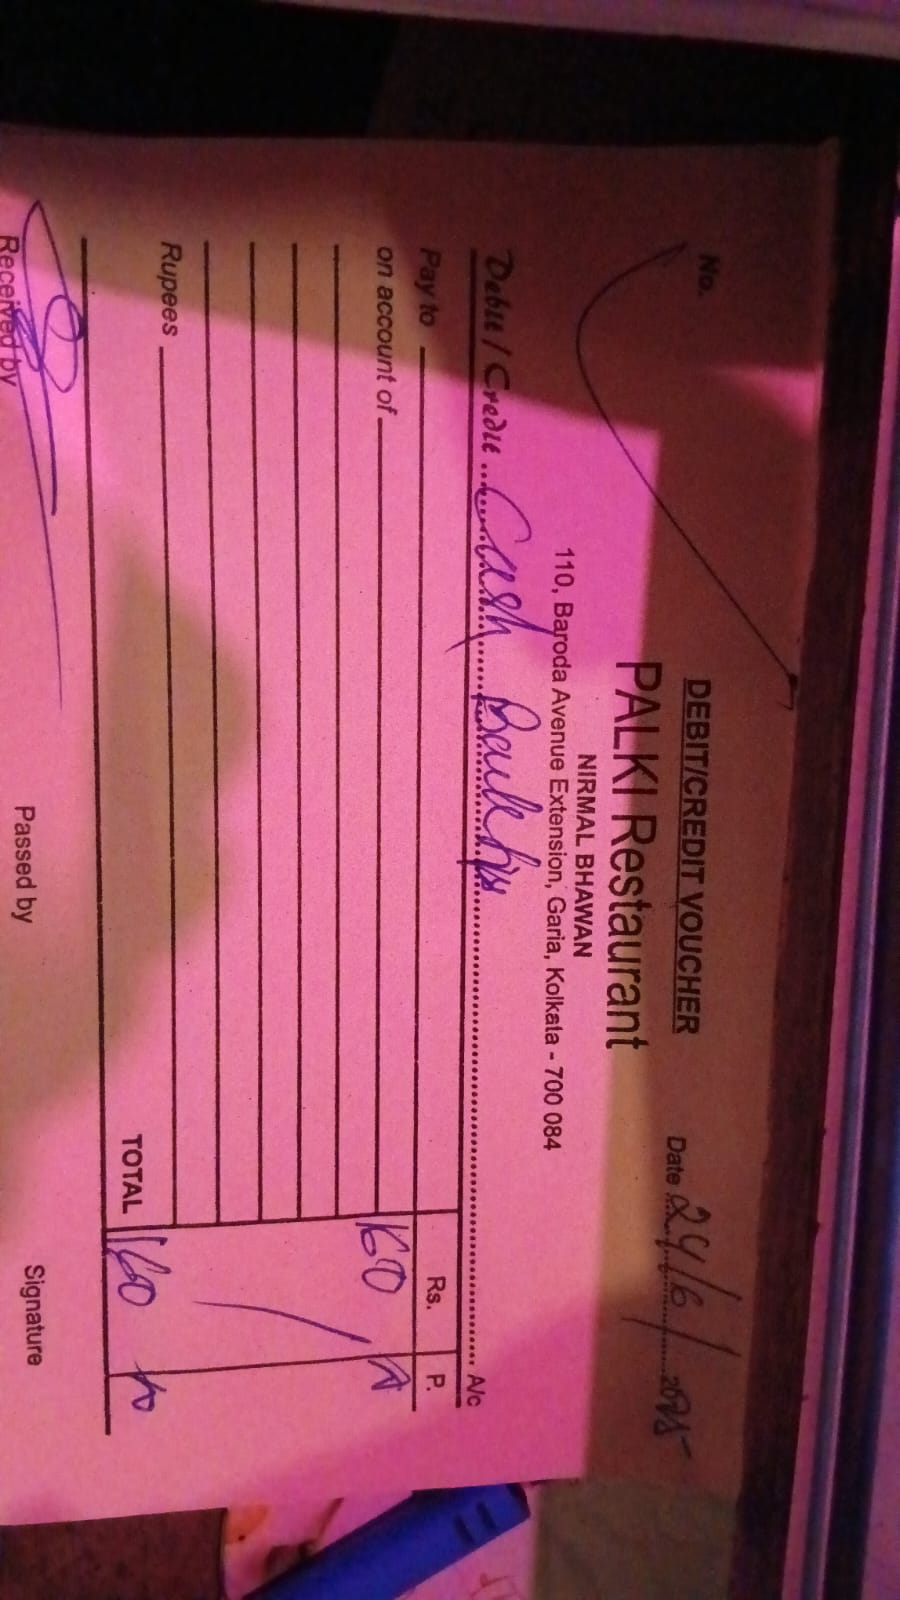 No.
DEBIT/CREDIT VOUCHER
Date 24/6/2025
PALKI Restaurant
NIRMAL BHAWAN
110, Baroda Avenue Extension, Garia, Kolkata - 700 084
Debit / Credit Cash A/c
Pay to Rs. P.
on account of 160
Rupees
TOTAL 160
Received by Passed by Signature